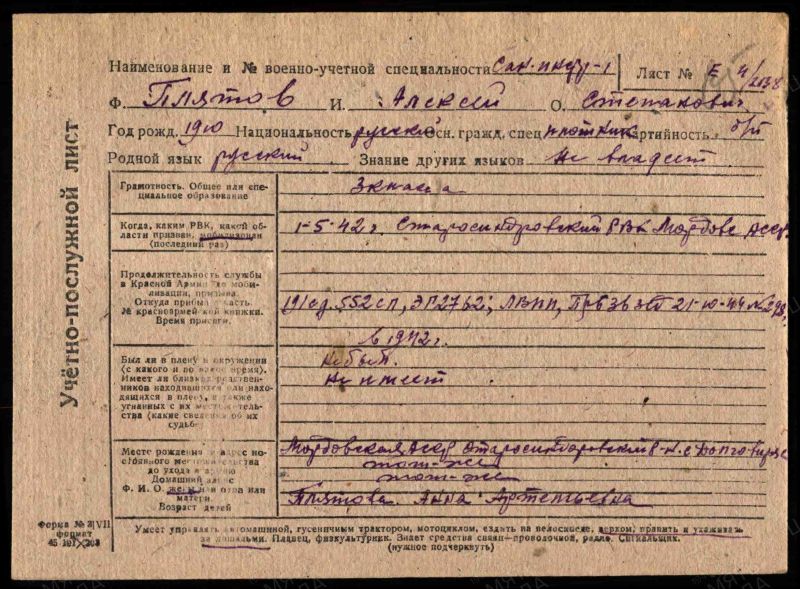 Учётно-послужной лист
Наименование и № военно-учетной специальности Сан. инстр-1 Лист № Е 4/2038
Ф. Плятов И. Алексей О. Степанович
Год рожд. 1910 Национальность русский Осн. гражд. спец. плотник Партийность б/п
Родной язык русский Знание других языков не владеет
Грамотность. Общее или специальное образование
3 класса
Когда, каким РВК, какой области призван, мобилизован (последний раз)
1-5-42 г. Старосиндровский РВК Мордовс АССР
Продолжительность службы в Красной Армии до мобилизации, призыва. Откуда прибыл в часть. № красноармейской книжки. Время присяги.
191 сд. 552 сп, ЭГ 2762, ЛВПП, 21-10-44 №
в 1942 г.
Был ли в плену в окружении (с какого и по какое время). Имеет ли близких родственников находившихся или находящихся в плену, а также угнанных с их местожительства (какие сведения об их судьбе)
Не был.
Не имеет
Место рождения и адрес постоянного местожительства до ухода в армию
Домашний адрес
Ф. И. О. жены или отца или матери
Возраст детей
Мордовская АССР Старосиндровский р-н. с.
тот-же
тот-же
Плятова Анна Артемьевна
Форма № 3|VII
формат
Умеет управлять автомашиной, гусеничным трактором, мотоциклом, ездить на велосипеде, верхом, править и ухаживать
за лошадьми. Пловец, физкультурник. Знает средства связи—проволочной, радио. Сигнальщик.
(нужное подчеркнуть)